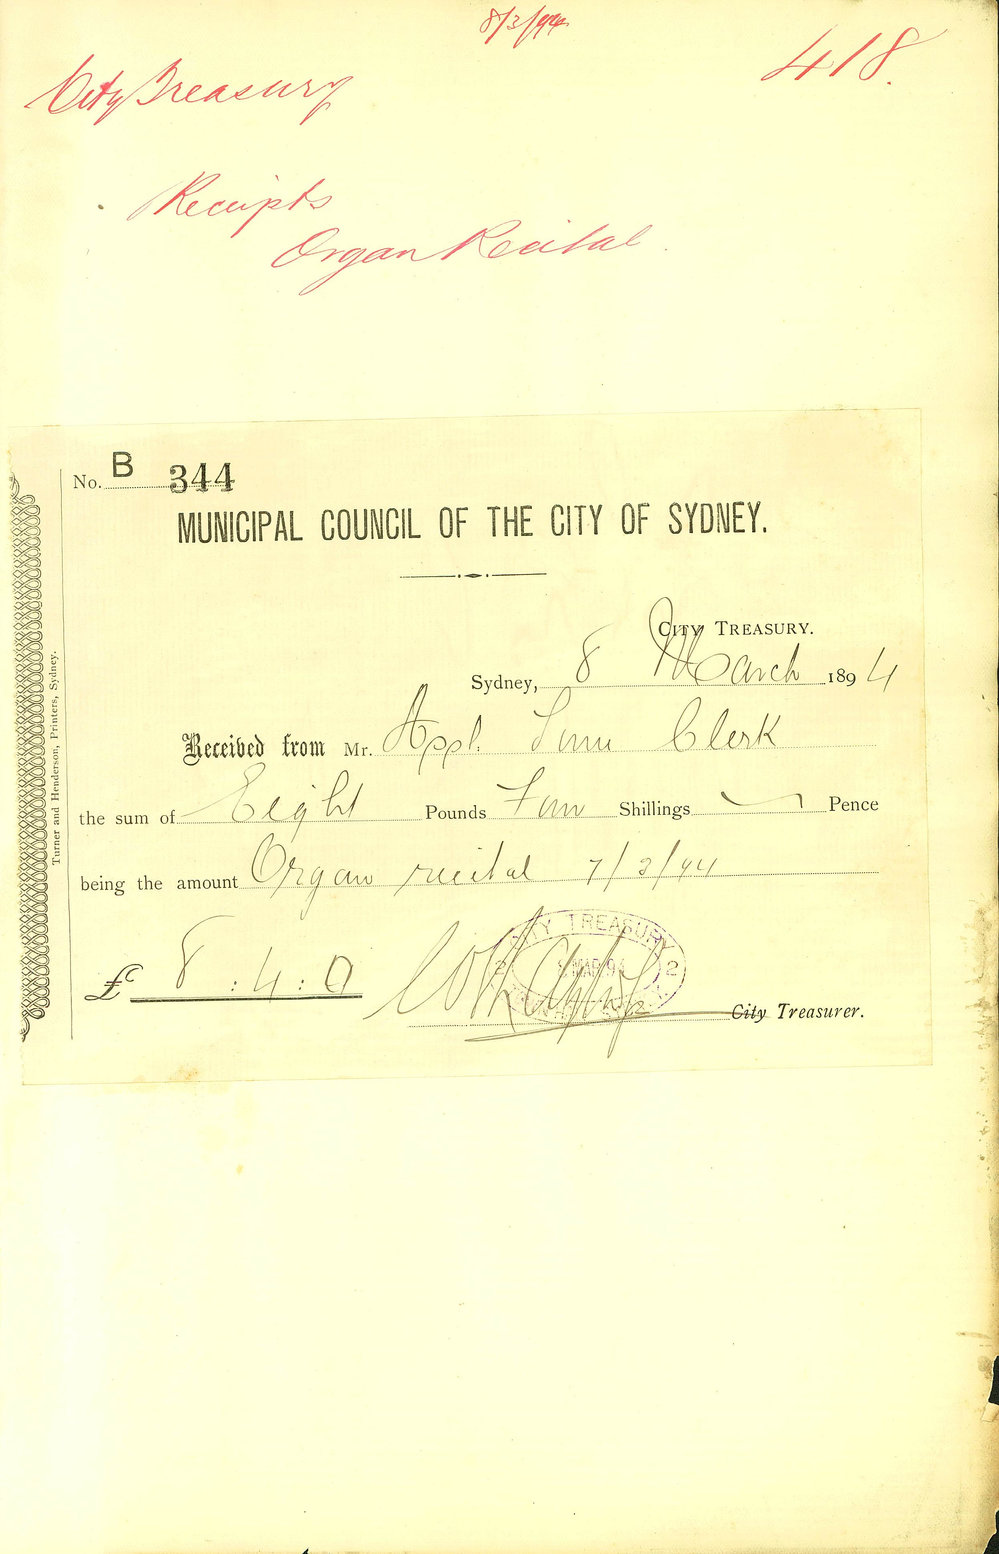 8/3/94
418.
City Treasury
Receipts
Organ Recital.
No. B 344
MUNICIPAL COUNCIL OF THE CITY OF SYDNEY.
CITY TREASURY.
Sydney, 8 March 1894
Received from Mr. Appl. Town Clerk
the sum of Eight Pounds Four Shillings Pence
being the amount Organ recital 7/3/94
£ 8 : 4 : 0
City Treasurer.
CITY TREASURY
2 MAR 94 2
Turner and Henderson, Printers, Sydney.